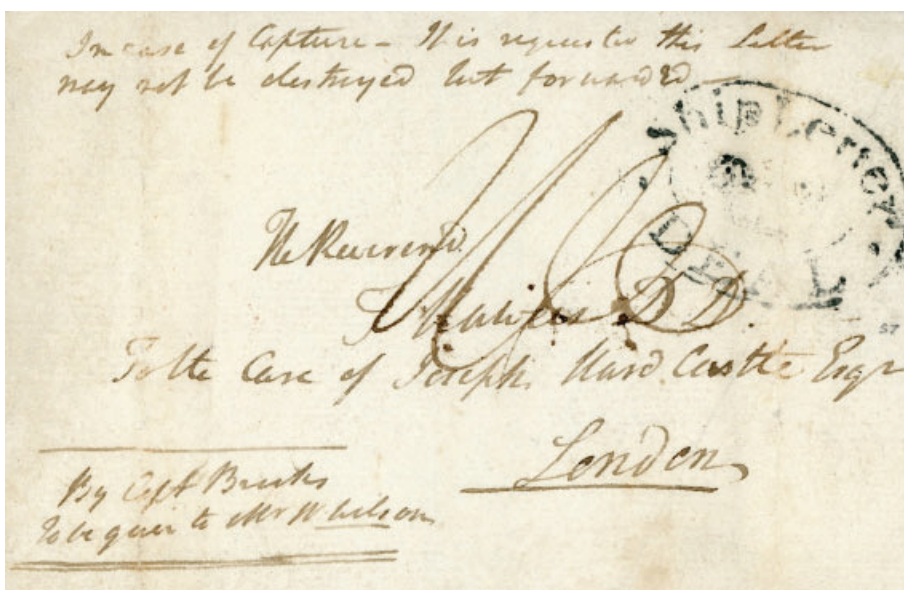 In case of Capture – It is requested this Letter
may not be destroyed but forwarded –
Ship Letter
DEAL
The Reverend
T Haweis D D.
To the Care of Joseph Hard Castle Esqr
London
By Capt Brooks
To be given to Mr Wilson
57